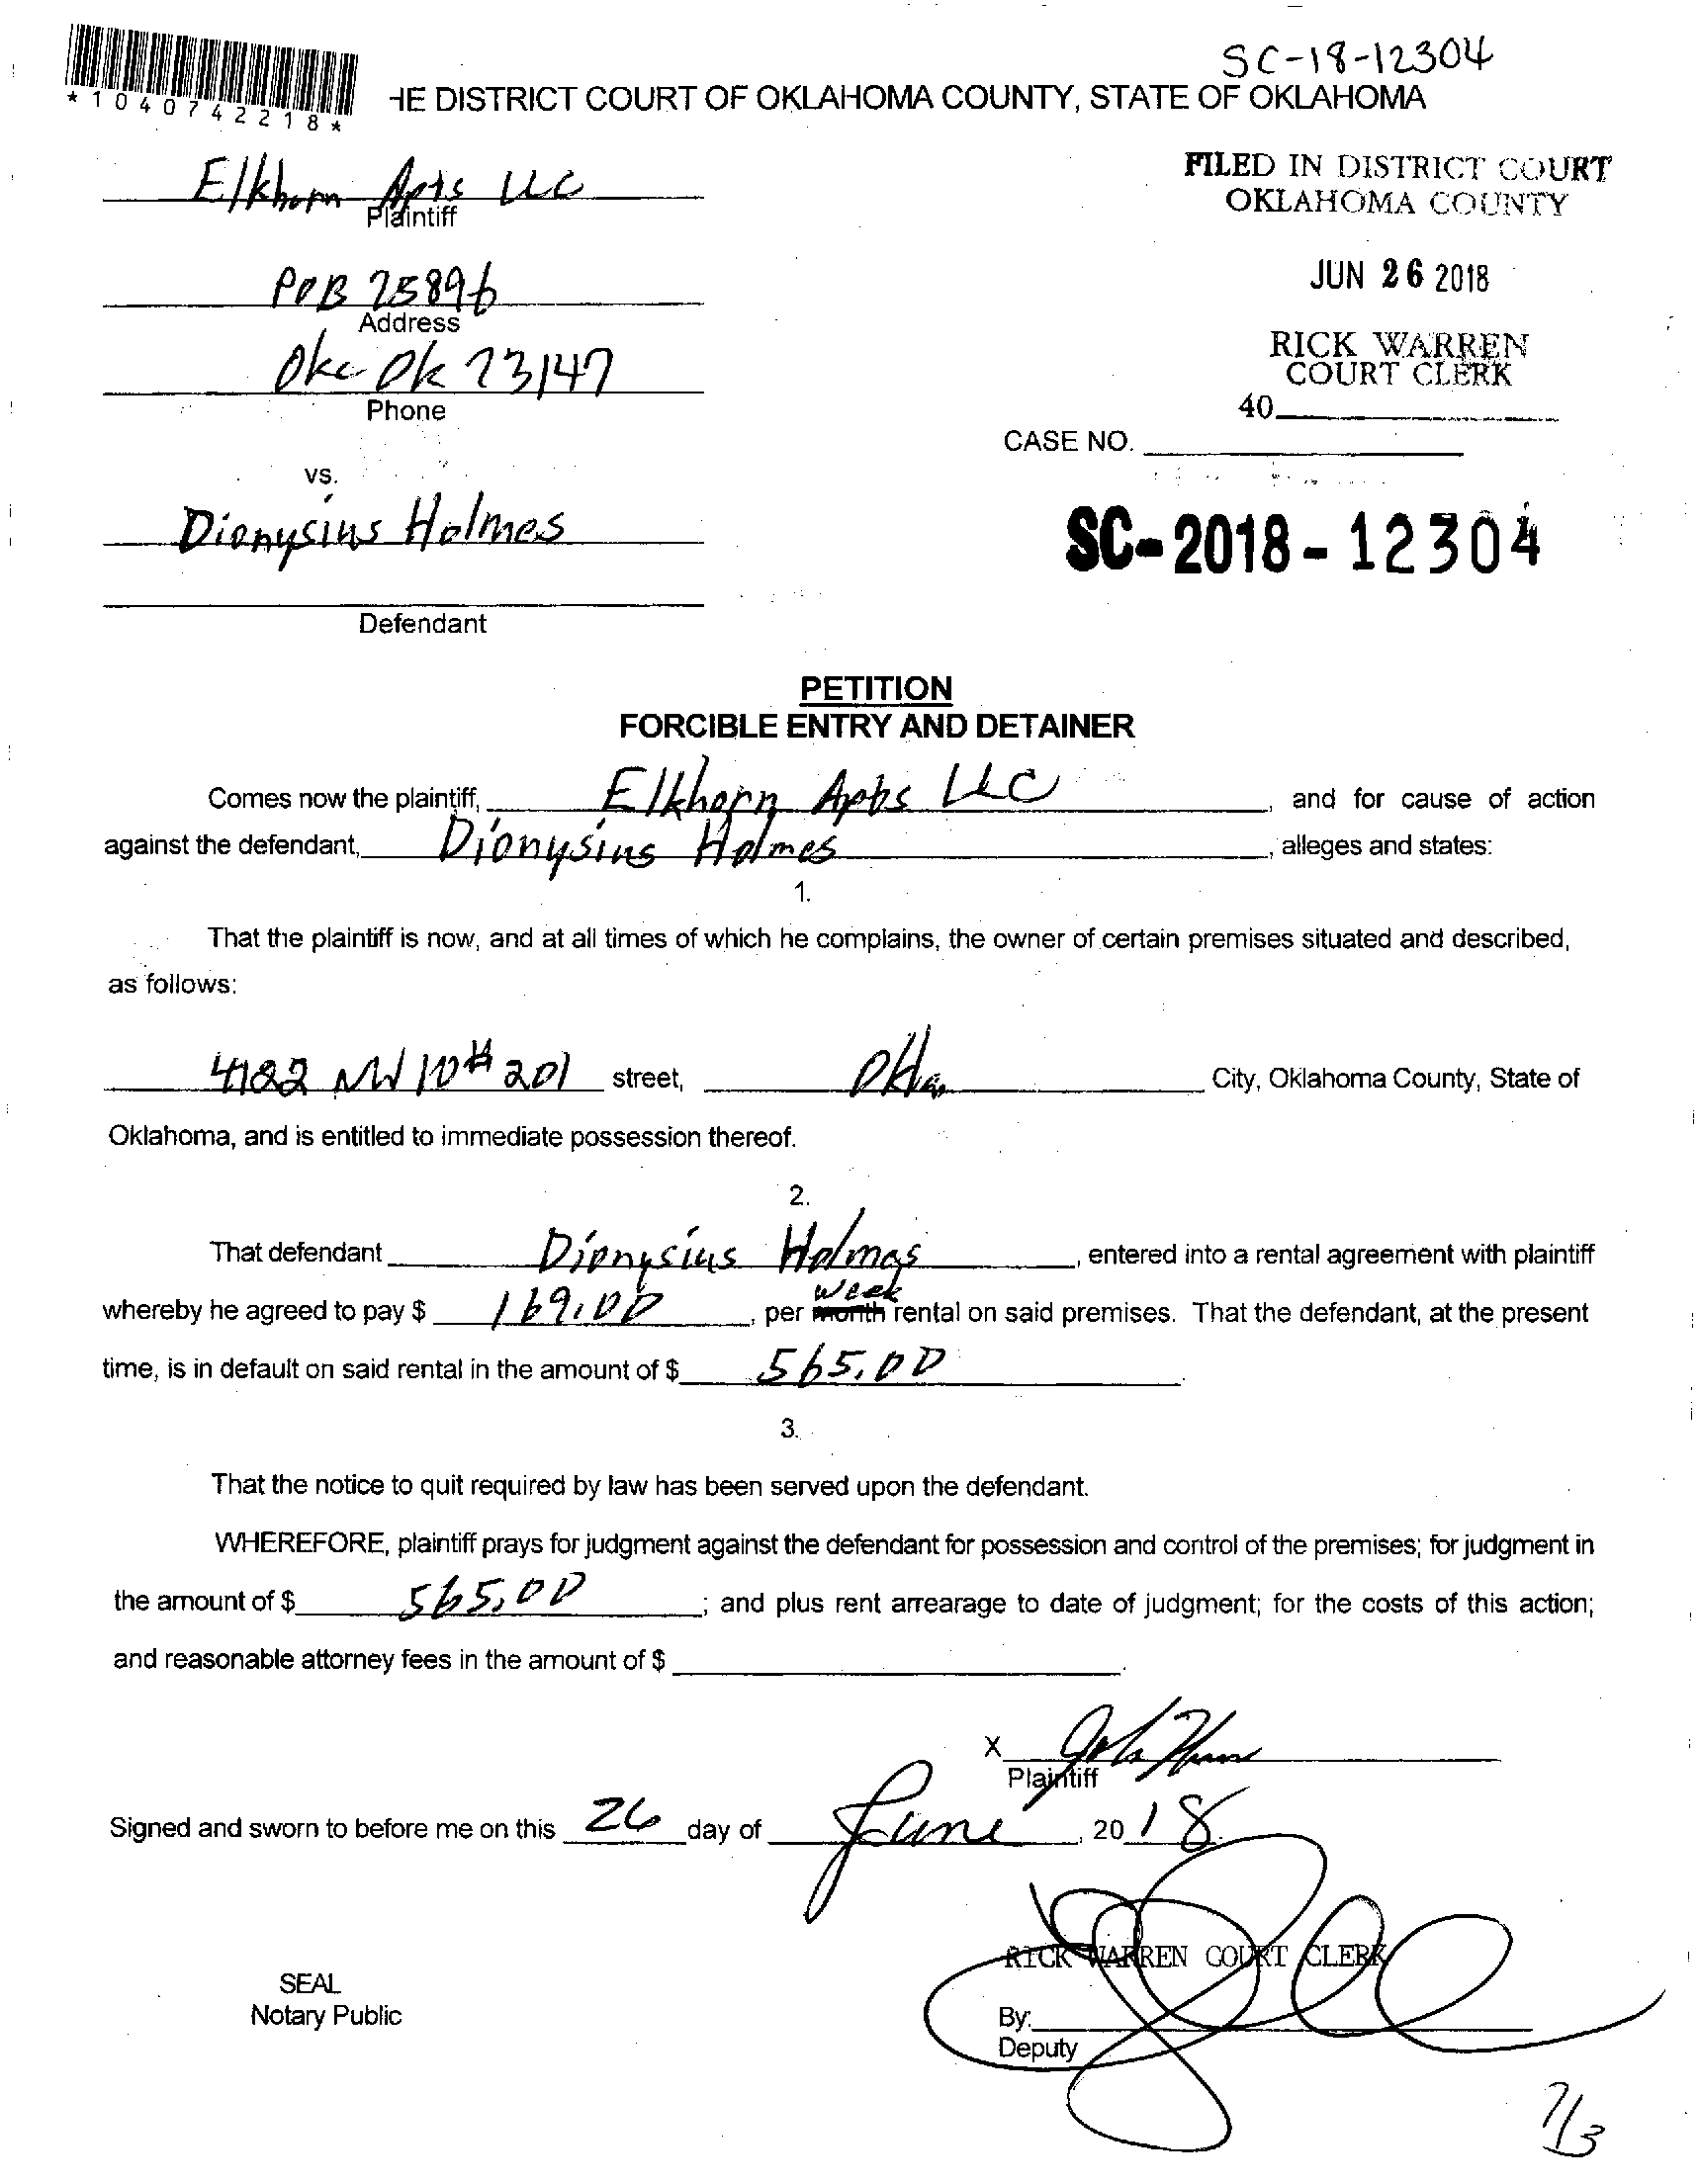 SC-18-12304
*1040742218*
HE DISTRICT COURT OF OKLAHOMA COUNTY, STATE OF OKLAHOMA
Elkhorn Apts LLC
Plaintiff
FILED IN DISTRICT COURT
OKLAHOMA COUNTY
POB 25896
Address
JUN 26 2018
Okc Ok 73147
Phone
RICK WARREN
COURT CLERK
40
CASE NO.
vs.
Dionysius Holmes
SC-2018-12304
Defendant
PETITION
FORCIBLE ENTRY AND DETAINER
Comes now the plaintiff, Elkhorn Apts LLC, and for cause of action
against the defendant, Dionysius Holmes, alleges and states:
1.
That the plaintiff is now, and at all times of which he complains, the owner of certain premises situated and described,
as follows:
4122 NW 10 # 201 street, Okla City, Oklahoma County, State of
Oklahoma, and is entitled to immediate possession thereof.
2.
That defendant Dionysius Holmes, entered into a rental agreement with plaintiff
week
whereby he agreed to pay $ 169.00, per month rental on said premises. That the defendant, at the present
time, is in default on said rental in the amount of $ 565.00.
3.
That the notice to quit required by law has been served upon the defendant.
WHEREFORE, plaintiff prays for judgment against the defendant for possession and control of the premises; for judgment in
the amount of $ 565.00; and plus rent arrearage to date of judgment; for the costs of this action;
and reasonable attorney fees in the amount of $
X
Plaintiff
Signed and sworn to before me on this 26 day of June, 2018.
RICK WARREN COURT CLERK
SEAL
Notary Public
By:
Deputy
7/3